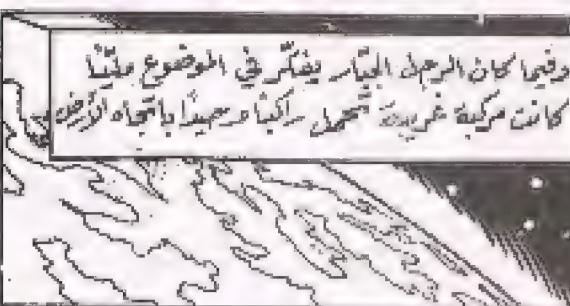 وفيما كان الرجل الجبّار يفكّر في الموضوع مليًّا
كانت مركبة غريبة تحمل راكبًا وحيدًا باتجاه الأرض